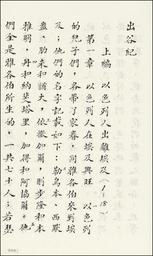 出谷紀
上編 以色列人出離埃及(1-18)
第一章 以色列人在埃及興旺 以色列
的兒子們,各帶了家眷,同雅各伯來到埃
及;他們的名字記載如下:勒烏本、西默
盎、肋未和猶大、依撒加爾、則步隆和本
雅明、丹和納斐塔里、加得和阿協爾。他
們全是雅各伯所生的,一共七十人;若瑟